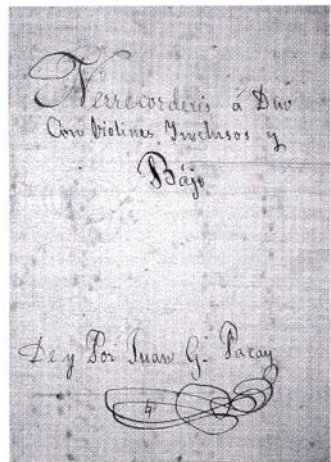 Nerrecorderis á Duo
Con Violines Inclusos y
Bájo
De y Por Juan G. Pacay